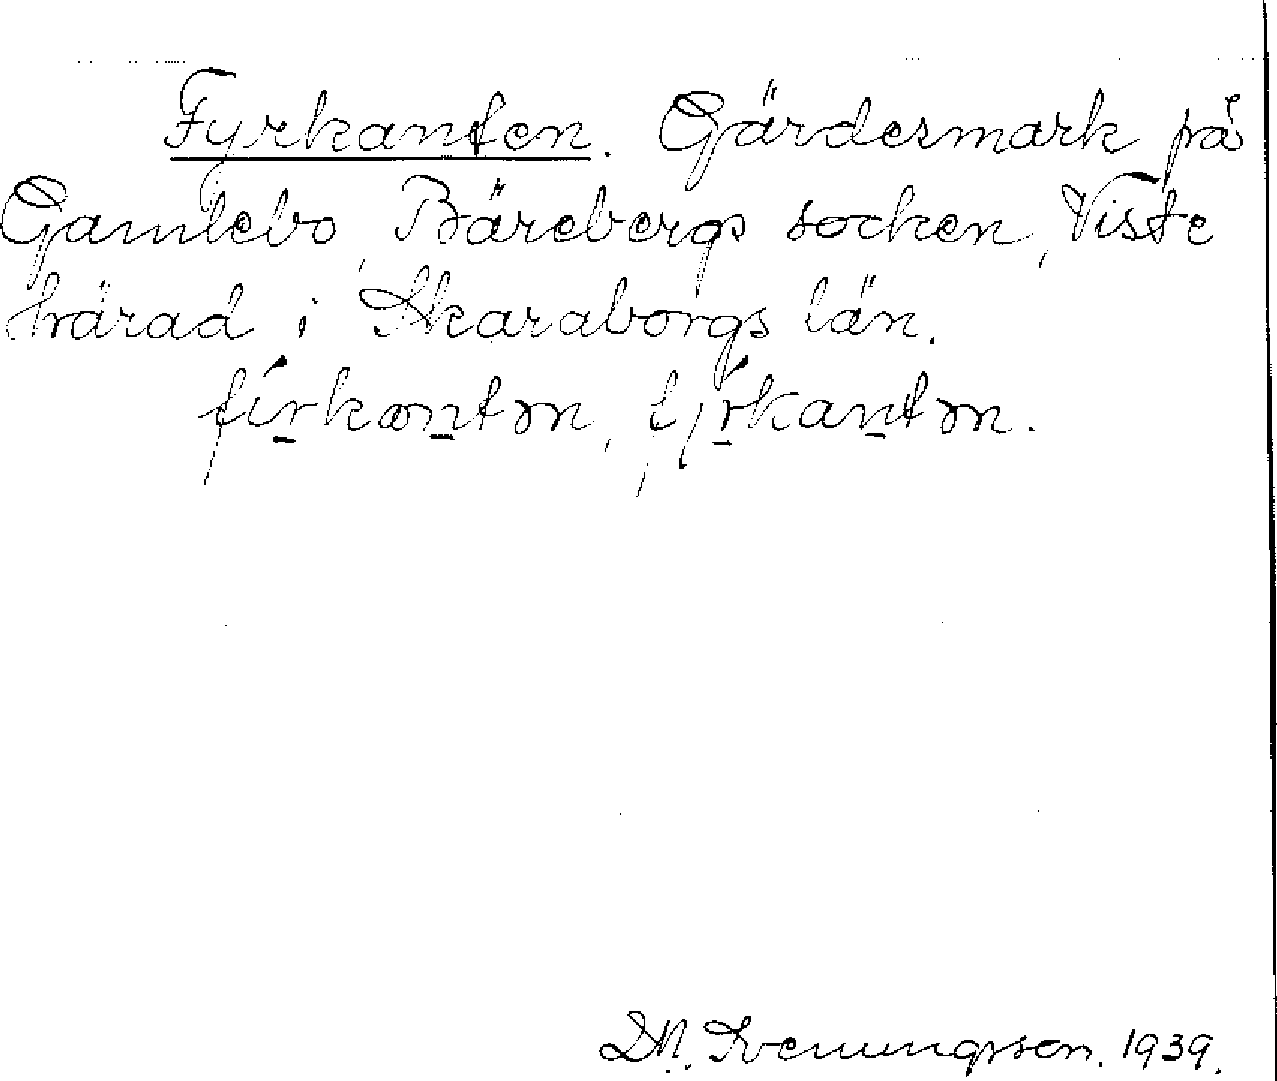 Fyrkanten. Gärdesmark på
Gamlebo, Bärebergs socken, Viste
härad i Skaraborgs län.
fírkantən, fýrkantən.
D.N. Svenungsson. 1939.